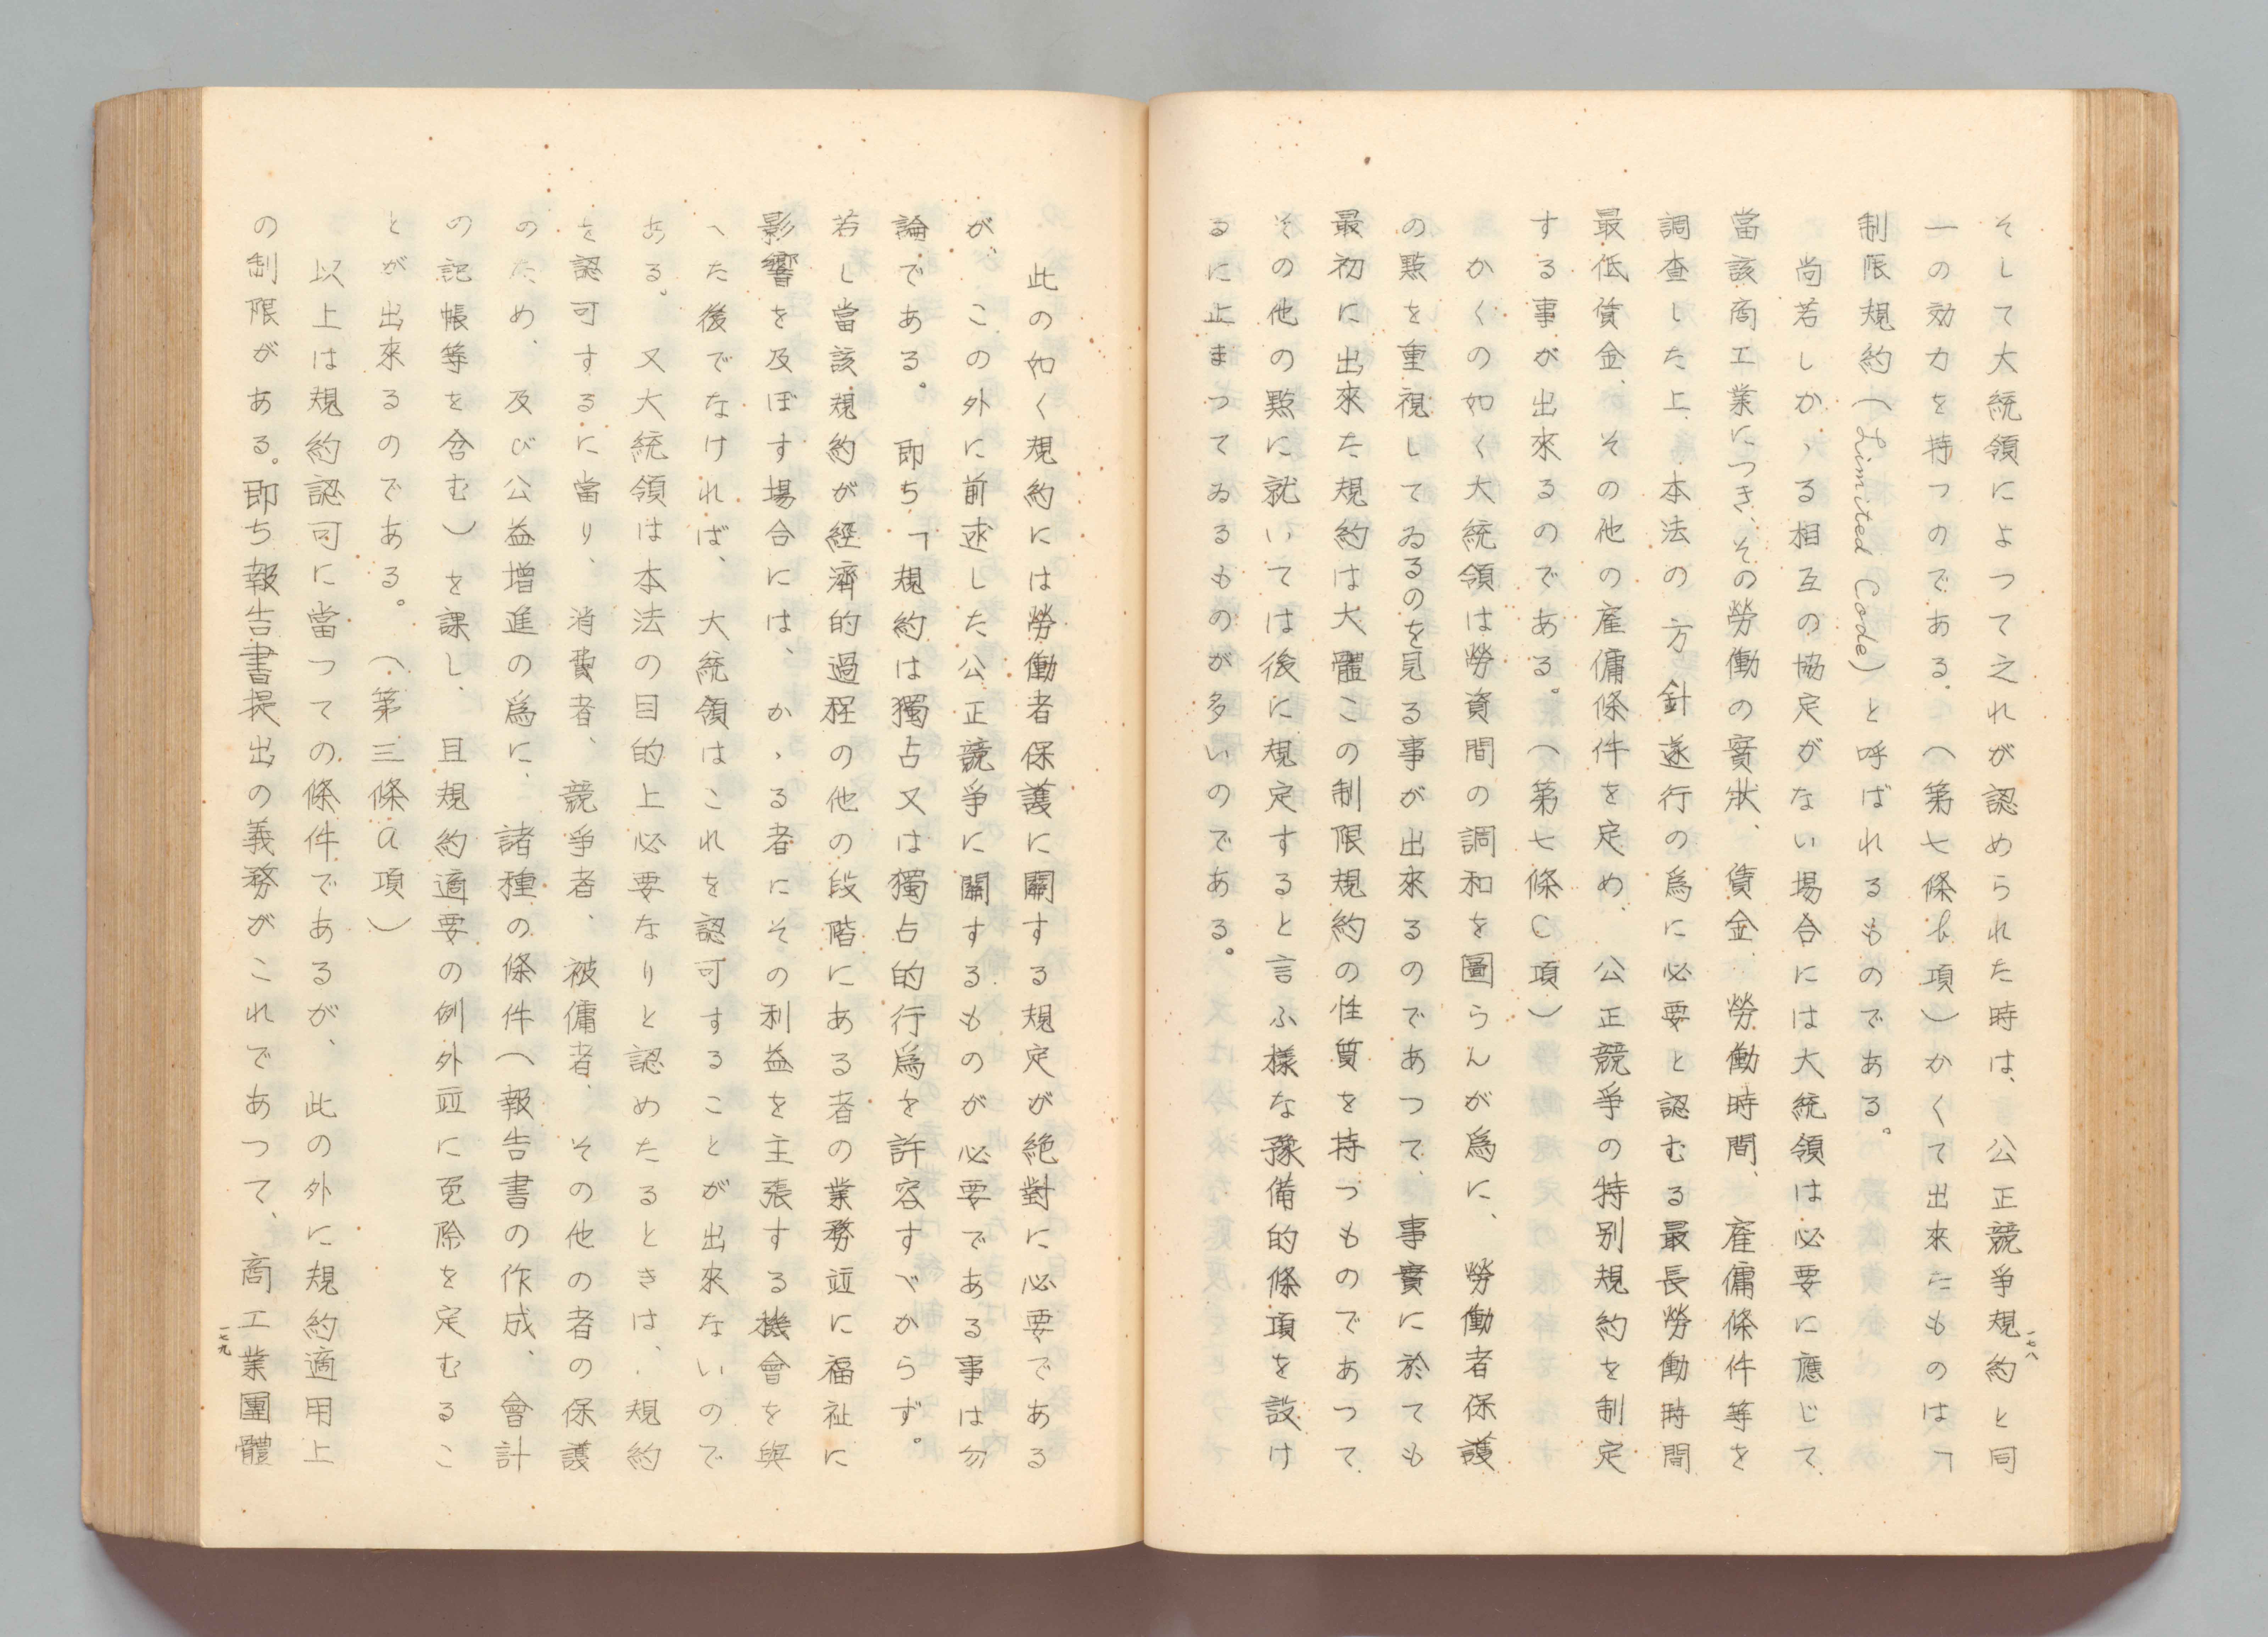 そして大統領によつて之れが認められた時は、公正競爭規約と同
一の効力を持つのである。（第七條b項）かくて出來たものは「
制限規約（Limited Code）と呼ばれるものである。
尚若しかゝる相互の協定がない場合には大統領は必要に應じて、
當該商工業につき、その勞働の實狀、賃金、勞働時間、雇傭條件等を
調查した上、本法の方針遂行の爲に必要と認むる最長勞働時間
最低賃金、その他の雇傭條件を定め、公正競爭の特別規約を制定
する事が出來るのである。（第七條C項）
かくの如く大統領は勞資間の調和を圖らんが爲に、勞働者保護
の點を重視してゐるのを見る事が出來るのであつて、事實に於ても
最初に出來た規約は大體この制限規約の性質を持つものであつて、
その他の點に就いては後に規定すると言ふ樣な豫備的條項を設け
るに止まつてゐるものが多いのである。
一七八
此の如く規約には勞働者保護に關する規定が絶對に必要である
が、この外に前述した公正競爭に關するものが必要である事は勿
論である。卽ち「規約は獨占又は獨占的行爲を許容すべからず。
若し當該規約が經濟的過程の他の段階にある者の業務竝に福祉に
影響を及ぼす場合には、かゝる者にその利益を主張する機會を與
へた後でなければ、大統領はこれを認可することが出來ないので
ある。又大統領は本法の目的上必要なりと認めたるときは、規約
を認可するに當り、消費者、競爭者、被傭者、その他の者の保護
のため、及び公益增進の爲に、諸種の條件（報告書の作成、會計
の記帳等を含む）を課し、且規約適要の例外竝に免除を定むるこ
とが出來るのである。（第三條a項）
以上は規約認可に當つての條件であるが、此の外に規約適用上
の制限がある。卽ち報告書提出の義務がこれであつて、商工業團體
一七九